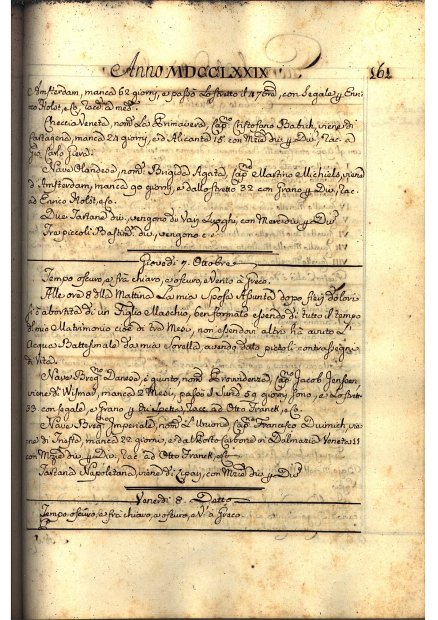 Anno MDCCLXXIX 161
Amsterdam, manca 62 giorni, e passò lo stretto il 17 con Segale p Enri-
co Holst, e so.
Checcia Veneta, nom La Primavera, Cap Cristofano Babich, viene di
Cartagena, manca 24 giorni, e d'Alicante 15. con Mzie div p Div, Rac. a
Gio Carlo
Nave Olandese, nom Brigida Agata, Cap Martino Michiels, viene
d'Amsterdam, manca 90 giorni, e dallo stretto 22 con Grano p Div, Rac.
ad Enrico Holst, e so.
Due Tartane div, vengono da Varj Luoghi, con Mercidiv p Div
Tra piccoli Bastim div, vengono e
Giovedi 7. Ottobre
Tempo oscuro, e frà chiaro, e oscuro, e Vento à Greco.
Alle ore 8 della Mattina La mia Sposa Assunta dopo fieri dolori
si è abortita di un Figlio Maschio, ben formato essendo di tutto il tempo
del mio Matrimonio cioè di tre Mesi, non essendovi altri hà avuto L'
Acqua Battesimale da mia Sorella, avendo dato piccoli contrassegni
di Vita.
Nave Breg Danese è giunto, nom Providenza, Cap Jacob Jensen
viene di Wismar, manca 2 Mesi, passò il Sund 59 giorni sono, e Lo stretto
con Segale, e Grano p Racc. ad Otto Franck, e Co.
Nave Breg Imperiale, nom L'Unione, Cap Francesco Duimich, vie-
ne di manca 22 giorni, e dal Porto Carbone in Dalmazia Veneta 11
con Mzie div p Div, Rac. ad Otto Franck, e so
Tartana Napoletana, viene di con Mzie div p Div
Venerdi 8. Detto
Tempo oscuro, e frà chiaro, e oscuro, e V. à Greco.